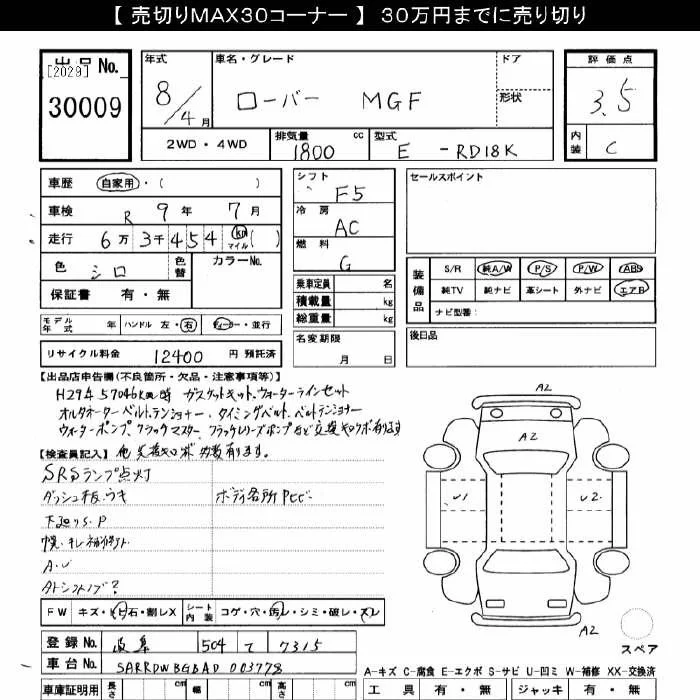 【 売切りMAX30コーナー 】 30万円までに売り切り
出品No.
[2029]
30009
年式
8/4月
車名・グレード
ローバー MGF
ドア
形状
評価点
3.5
内装
C
2WD・4WD
排気量 cc
1800
型式
E -RD18K
車歴 自家用・( )
車検 R 9年 7月
走行 6万3千454 km マイル ( )
色 シロ 色替
カラーNo.
保証書 有・無
シフト
F5
冷房
AC
燃料
G
乗車定員 名
積載量 kg
総重量 kg
セールスポイント
装備品
S/R 純A/W P/S P/W ABS
純TV 純ナビ 革シート 外ナビ エアB
ナビ型番:
モデル年式 年 ハンドル 左・右 ディーラー・並行
名変期限
月 日
後日品
リサイクル料金 12400 円 預託済
【出品店申告欄(不良箇所・欠品・注意事項等)】
H294 57046km時 ガスケットキット、ウォーターラインセット
オルタネーターベルトテンショナー、タイミングベルト、ベルトテンショナー
ウォーターポンプ、クラッチマスター、クラッチレリーズポンプなど交換キロク有ります
【検査員記入】 他 交換キロク 多数有ります。
SRSランプ点灯
ダッシュ板、ウキ ボディ各所PECビー
下廻りS.P
幌、キレ補修跡
A・U
FW キズ・トビ石・割レX シート内装 コゲ・穴・汚レ・シミ・破レ・スレ
登録No. 岐阜 504 て 7315
車台No. SARRDWBGBAD003778
車庫証明用 長さ cm 幅 cm 高さ cm
A2
A2
U1
U2
A2
スペア
A-キズ C-腐食 E-エクボ S-サビ U-凹ミ W-補修 XX-交換済
工具 有・無 ジャッキ 有・無